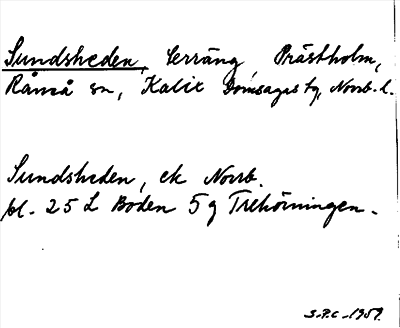 Sundsheden, terräng, Prästholm,
Råneå sn, Kalix Domsagas tg, Norrb. l.
Sundsheden, ek Norrb.
bl. 25 L Boden 5 g Trehörningen.
S.P.C. 1959.